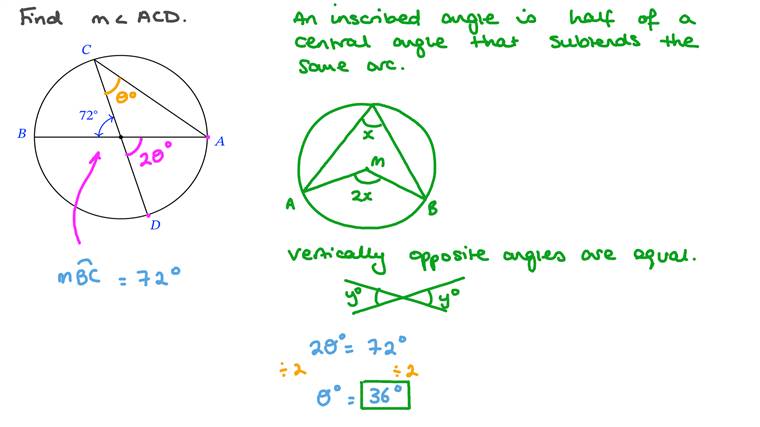 Find m∠ACD.
C
θ°
72°
B
A
2θ°
D
mBC͡ = 72°
An inscribed angle is half of a
central angle that subtends the
same arc.
x
M
2x
A
B
Vertically opposite angles are equal.
y° y°
2θ° = 72°
÷2 ÷2
θ° = 36°